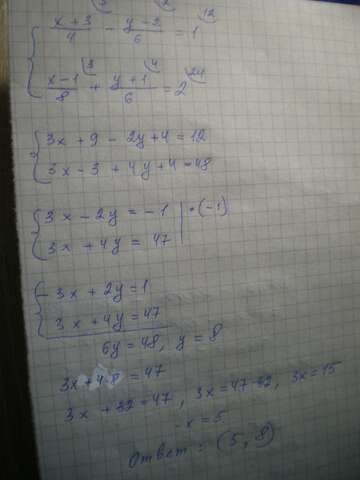 (x+3)/4 ^3 - (y-2)/6 ^2 = 1 ^12
(x-1)/8 ^3 + (y+1)/6 ^4 = 2 ^24
3x + 9 - 2y + 4 = 12
3x - 3 + 4y + 4 = 48
3x - 2y = -1 | · (-1)
3x + 4y = 47
- 3x + 2y = 1
3x + 4y = 47
6y = 48, y = 8
3x + 4·8 = 47
3x + 32 = 47, 3x = 47-32, 3x = 15
x = 5
Ответ: (5, 8)